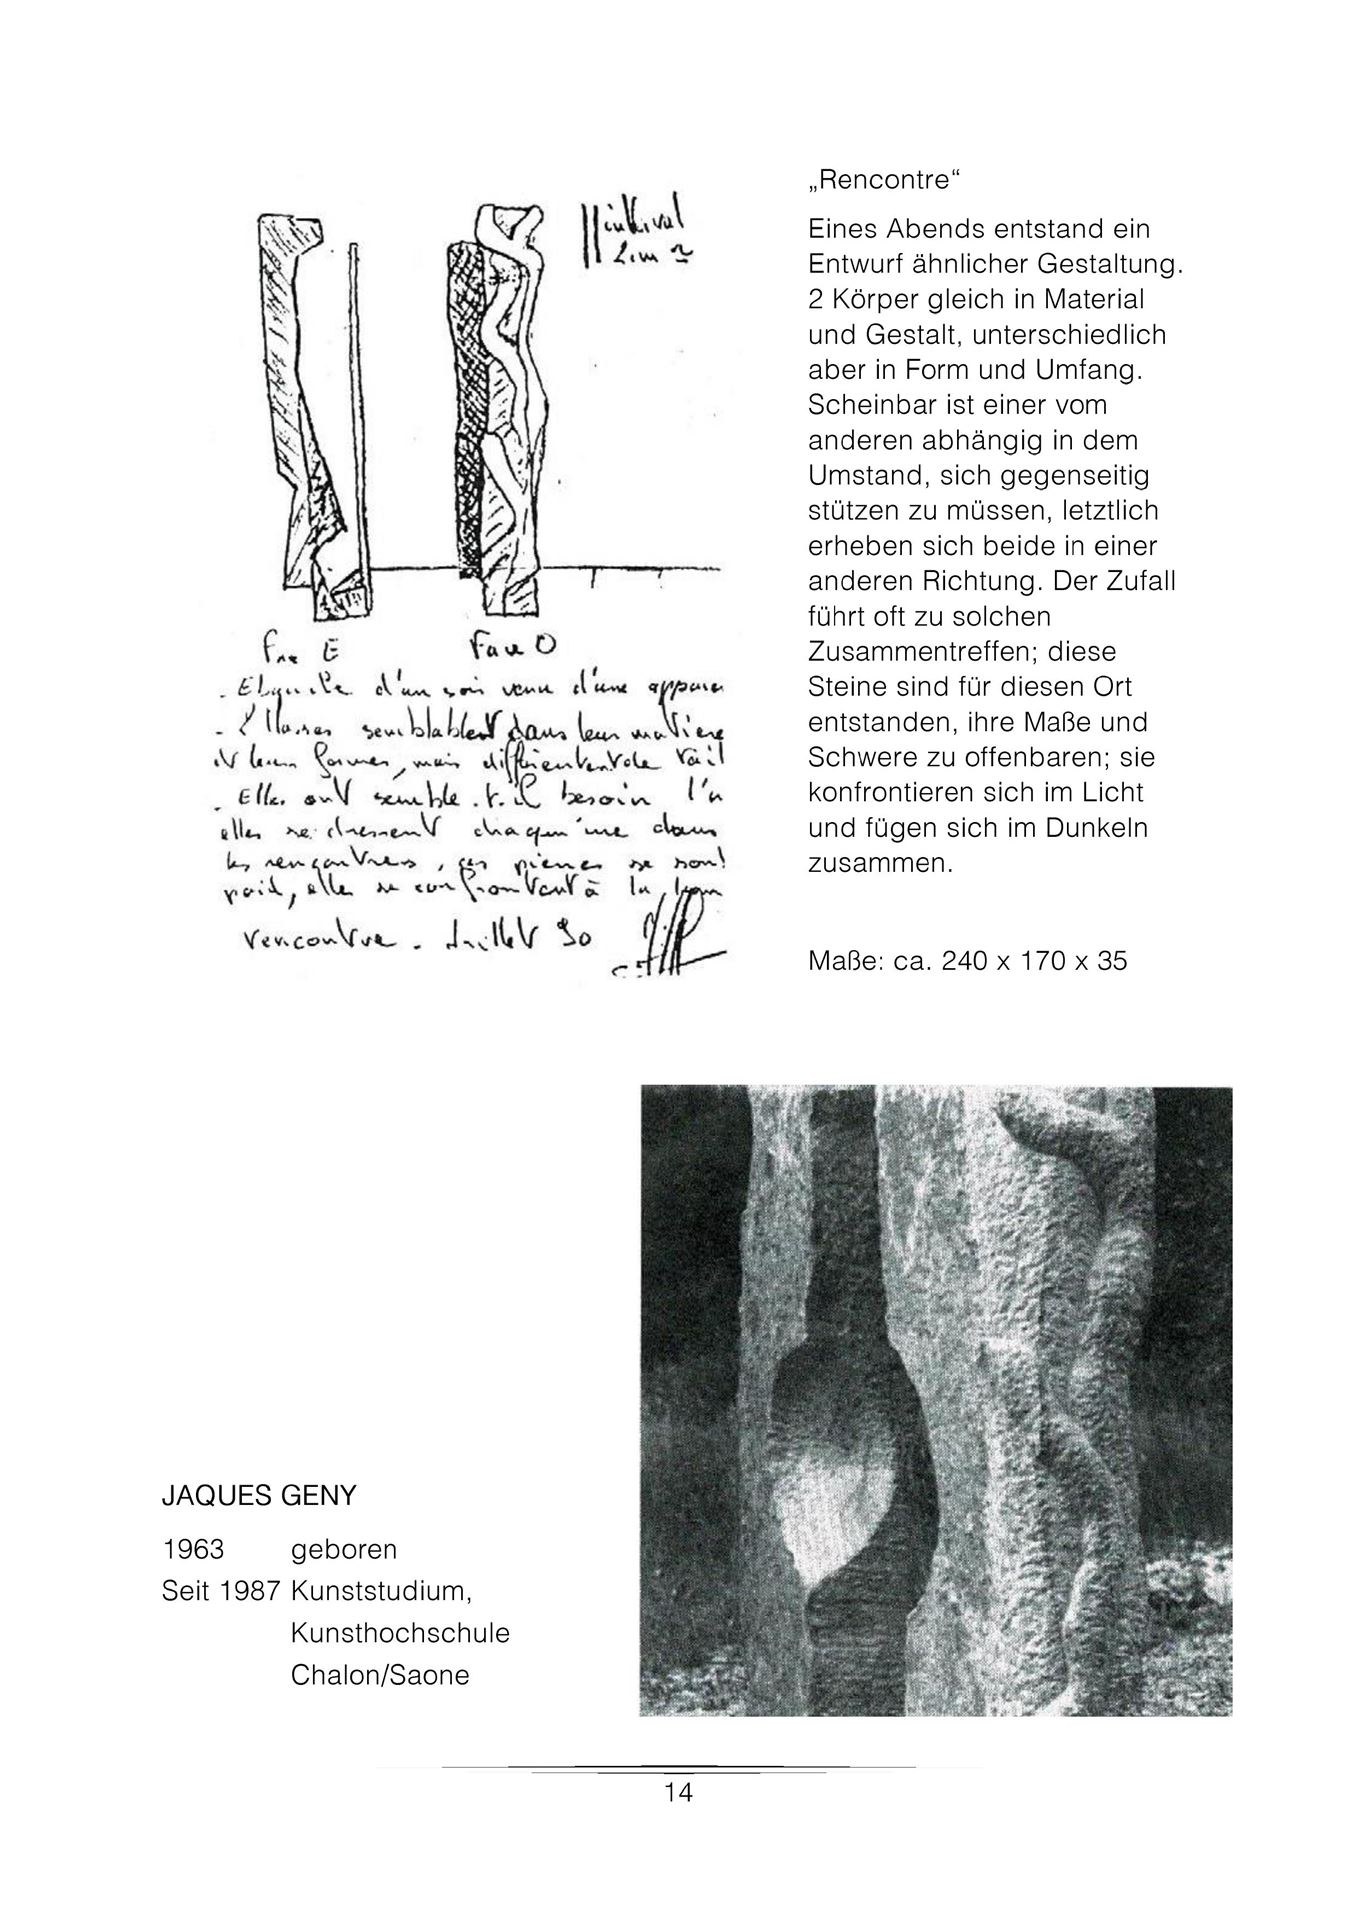 „Rencontre“
Eines Abends entstand ein
Entwurf ähnlicher Gestaltung.
2 Körper gleich in Material
und Gestalt, unterschiedlich
aber in Form und Umfang.
Scheinbar ist einer vom
anderen abhängig in dem
Umstand, sich gegenseitig
stützen zu müssen, letztlich
erheben sich beide in einer
anderen Richtung. Der Zufall
führt oft zu solchen
Zusammentreffen; diese
Steine sind für diesen Ort
entstanden, ihre Maße und
Schwere zu offenbaren; sie
konfrontieren sich im Licht
und fügen sich im Dunkeln
zusammen.
Maße: ca. 240 x 170 x 35
Face O
d'un soir venu d'une
semblables dans leur matière
et leurs formes, mais
Elles ont semble.t.il besoin l'u
elles se dressent chaqu'une dans
les rencontres, ces pierres se sont
poid, elles se confrontent à la
rencontre. Juillet 90
JAQUES GENY
1963 geboren
Seit 1987 Kunststudium,
Kunsthochschule
Chalon/Saone
14